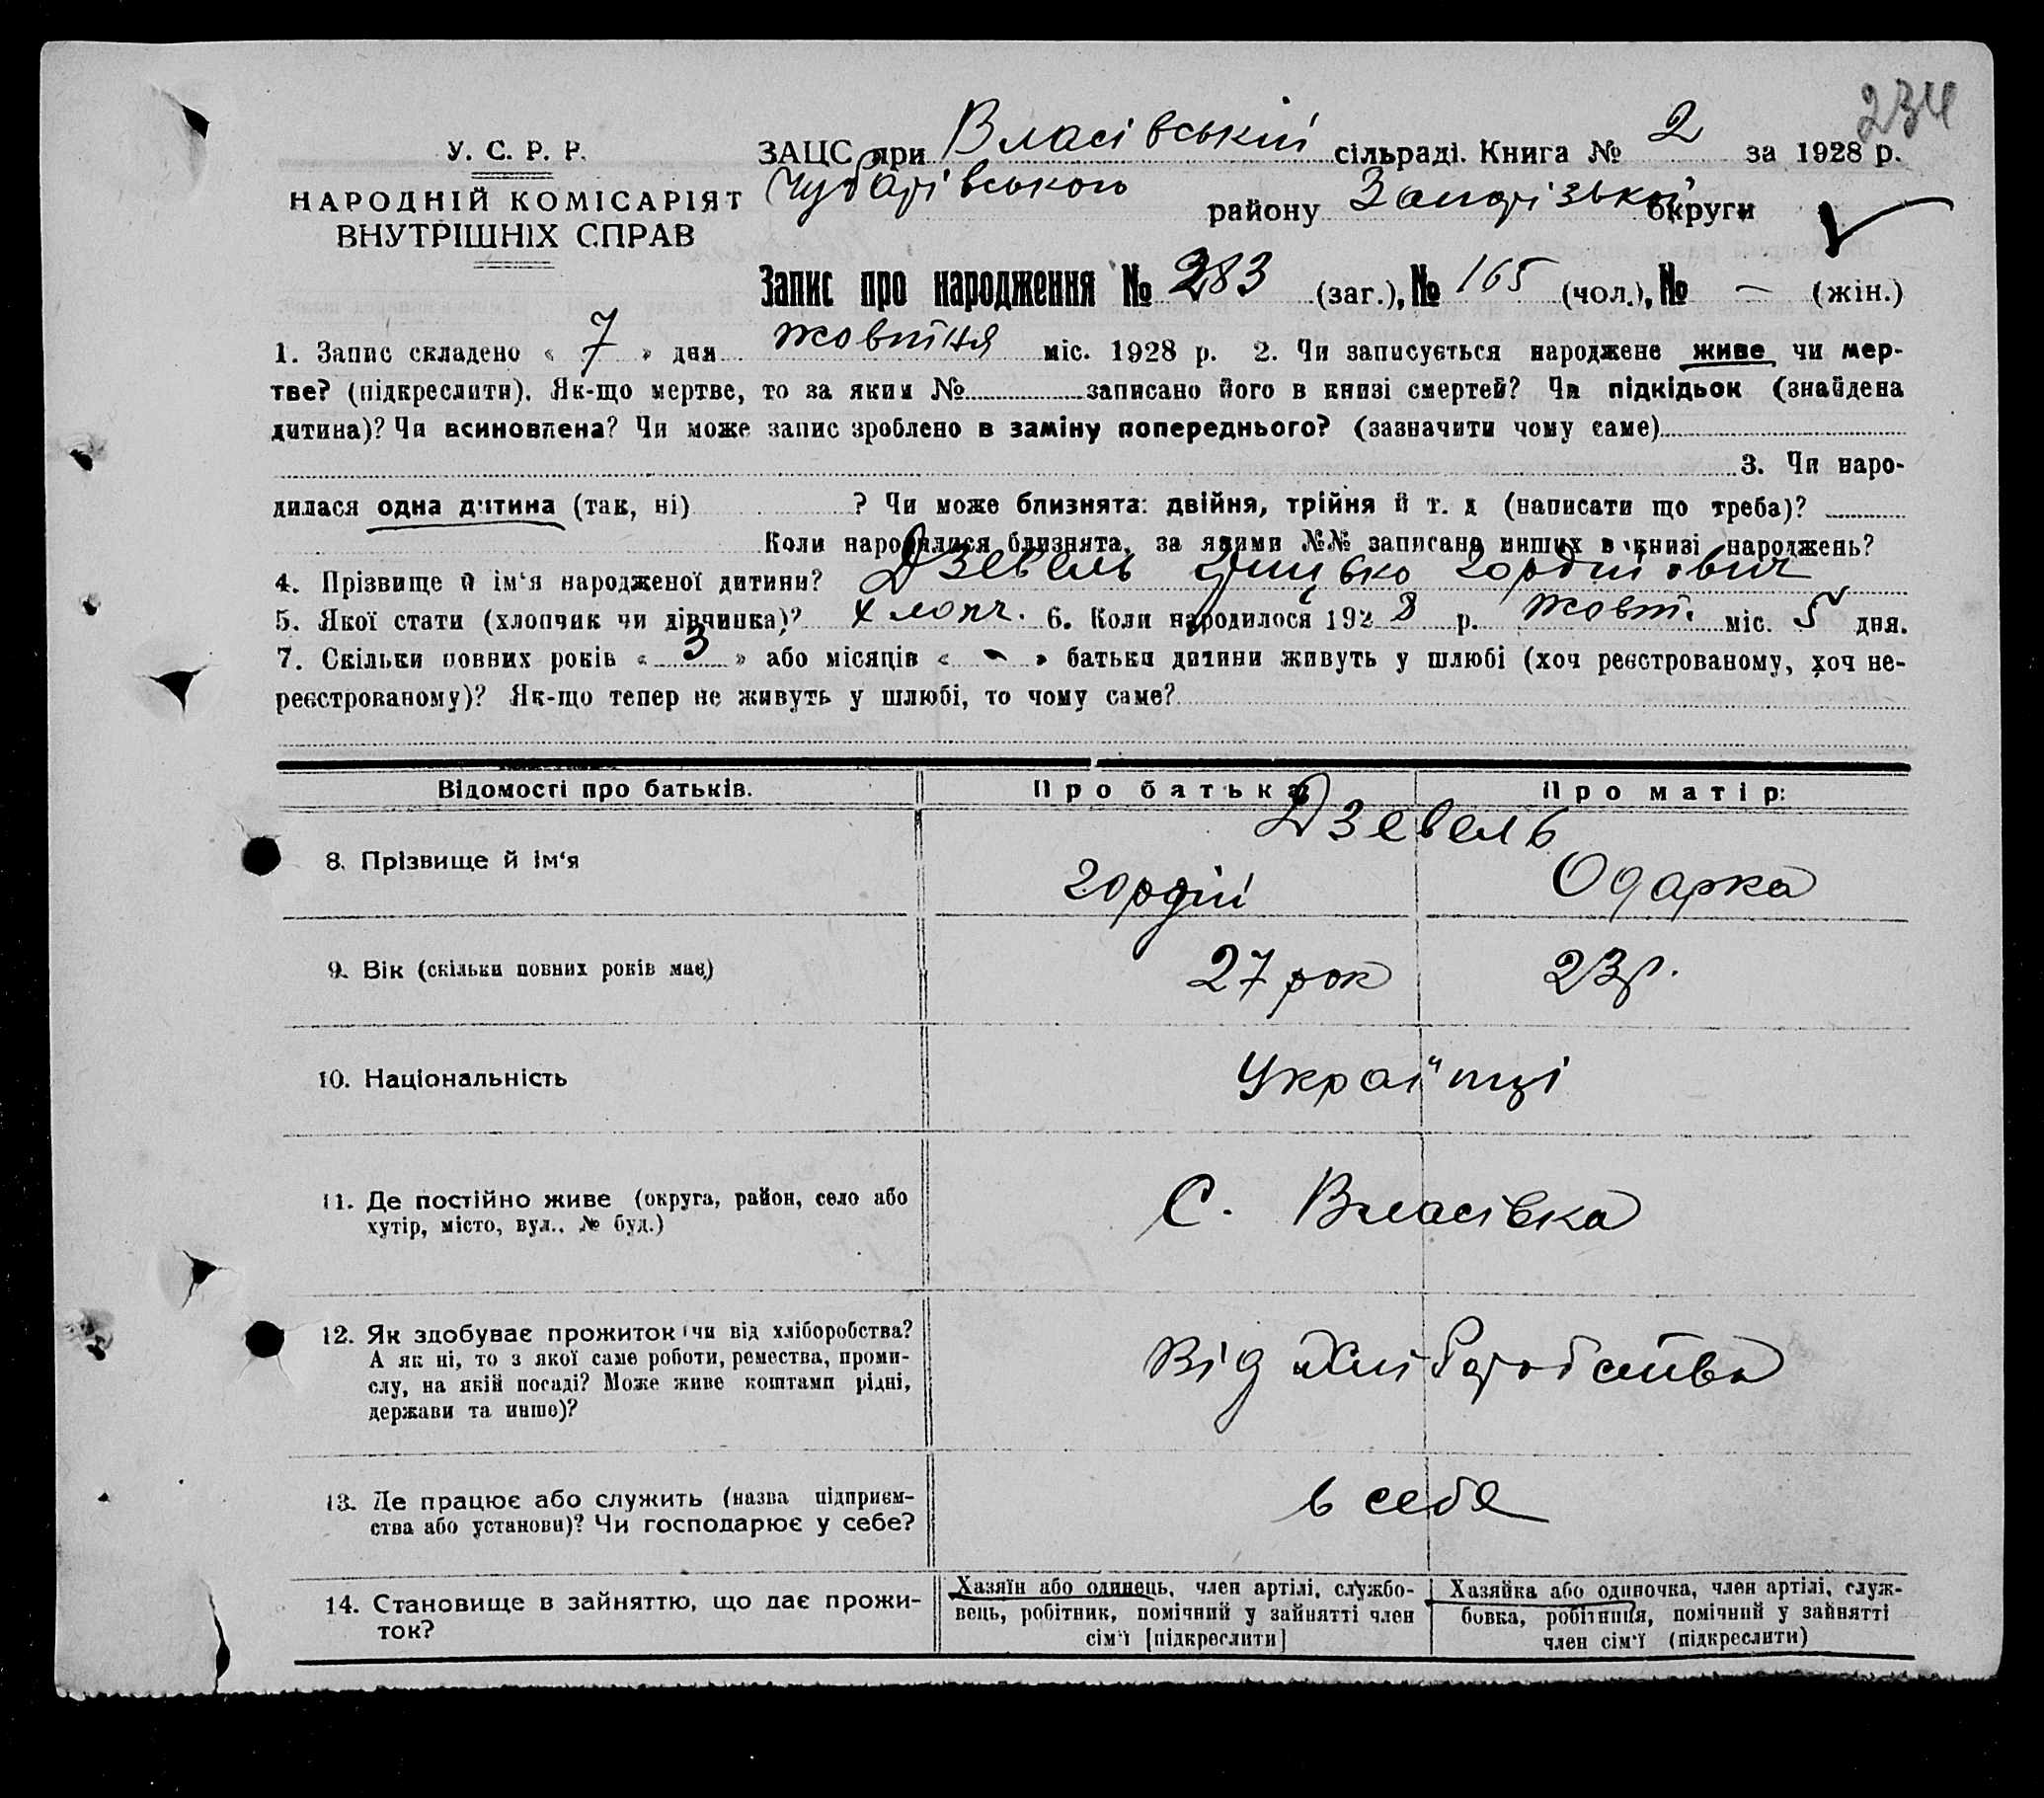 234
У. С. Р. Р.
НАРОДНІЙ КОМІСАРІЯТ
ВНУТРІШНІХ СПРАВ
ЗАЦС при Власівській сільраді. Книга № 2 за 1928 р.
Чубарівського району Запорізької округи
Запис про народження № 283 (заг.), № 165 (чол.), № — (жін.)
1. Запис складено « 7 » дня жовтня міс. 1928 р. 2. Чи записується народжене живе чи мер-
тве? (підкреслити). Як-що мертве, то за яким № записано його в книзі смертей? Чи підкідьок (знайдена
дитина)? Чи всиновлена? Чи може запис зроблено в заміну попереднього? (зазначити чому саме)
3. Чи наро-
дилася одна дитина (так, ні) ? Чи може близнята: двійня, трійня й т. д (написати що треба)?
Коли народилися близнята, за якими №№ записано инших в книзі народжень?
4. Прізвище й ім‘я народженої дитини? Дзевель Гордійович
5. Якої стати (хлопчик чи дівчинка)? хлопч. 6. Коли народилося 1928 р. жовт. міс. 5 дня.
7. Скільки повних років « 3 » або місяців « - » батьки дитини живуть у шлюбі (хоч реєстрованому, хоч не-
реєстрованому)? Як-що тепер не живуть у шлюбі, то чому саме?
Відомості про батьків. Про батька Про матір:
Дзевель
8. Прізвище й ім‘я Гордій Одарка
9. Вік (скільки повних років має) 27 рок 23 р.
10. Національність Українці
11. Де постійно живе (округа, район, село або
хутір, місто, вул., № буд.)
С. Власівка
12. Як здобуває прожиток чи від хліборобства?
А як ні, то з якої саме роботи, ремества, проми-
слу, на якій посаді? Може живе коштами рідні,
держави та инше)?
Від Хліборобства
13. Де працює або служить (назва підприєм-
ства або установи)? Чи господарює у себе?
в себе
14. Становище в зайняттю, що дає прожи-
ток?
Хазяїн або одинець, член артілі, службо-
вець, робітник, помічний у зайнятті член
сім‘ї [підкреслити]
Хазяйка або одиночка, член артілі, служ-
бовка, робітниця, помічний у зайнятті
член сім‘ї (підкреслити)